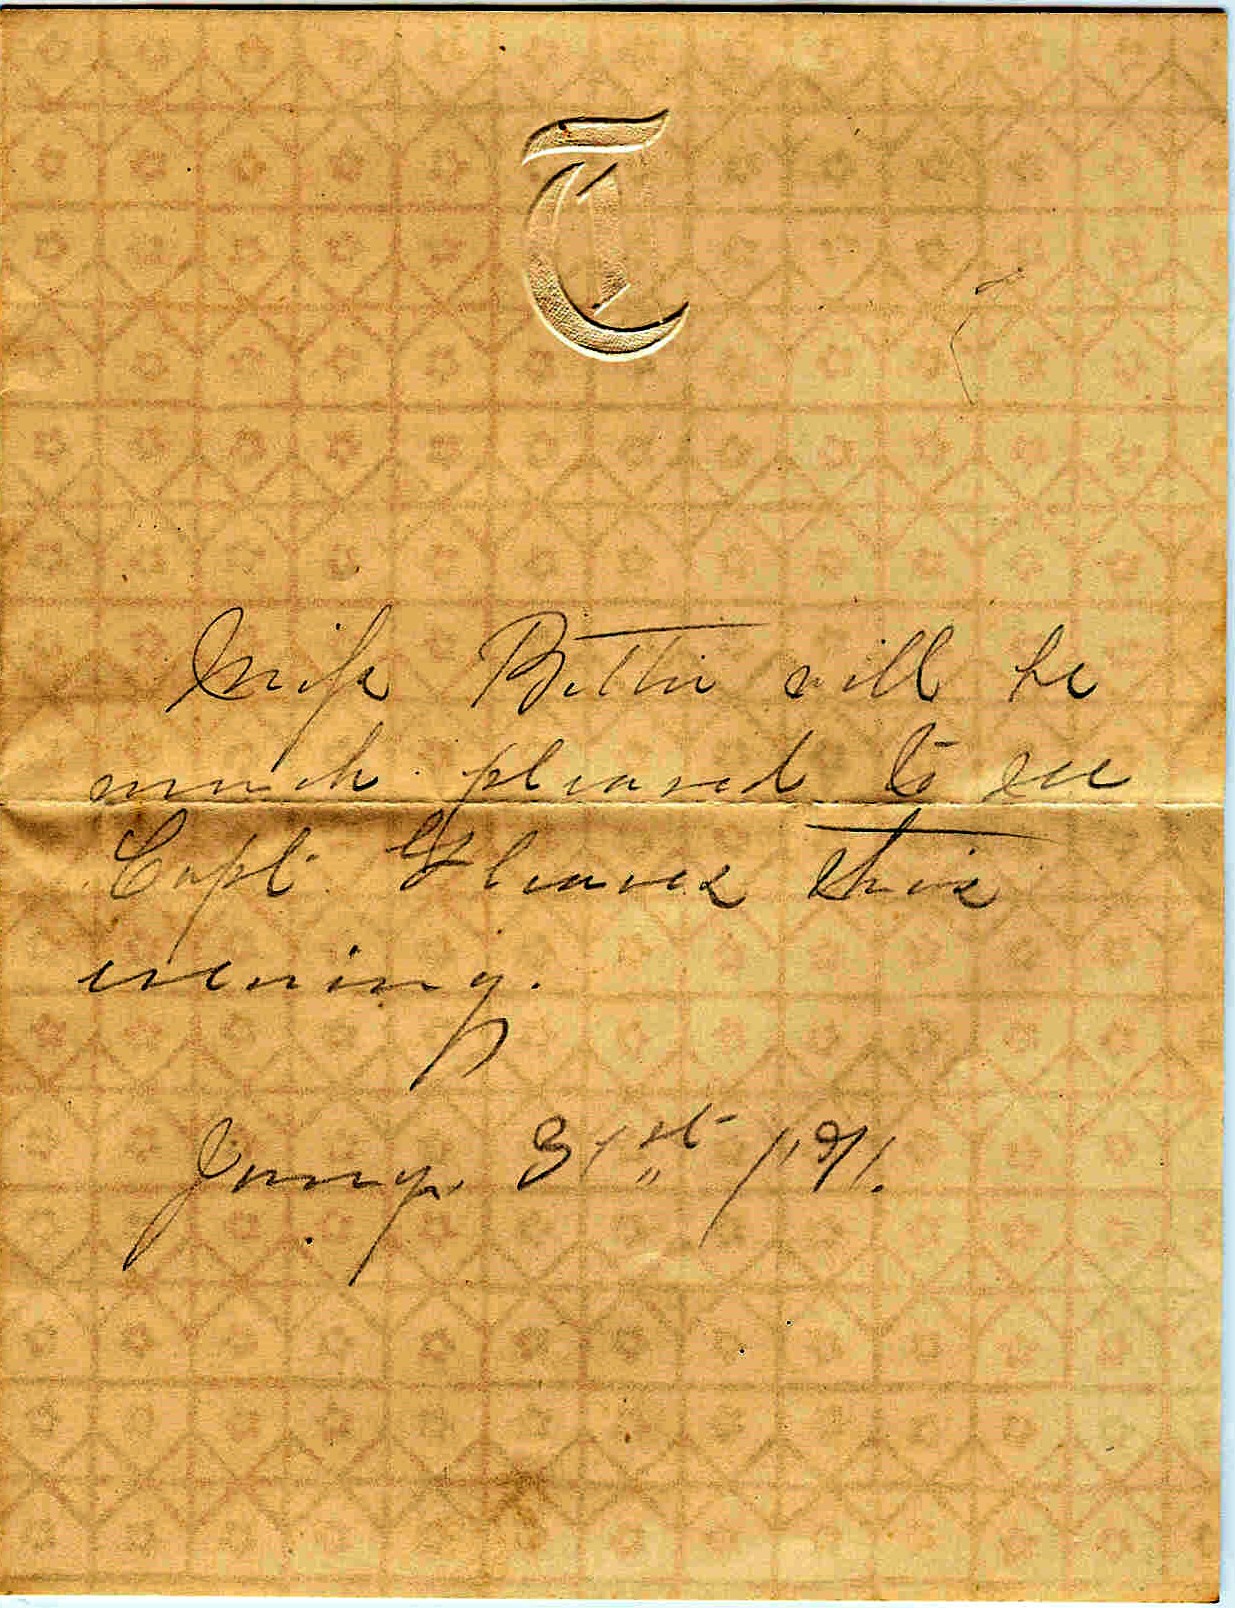 T
Miss Bettie will be
much pleased to see
Capt. Gleaves this
evening.
Jany. 31st